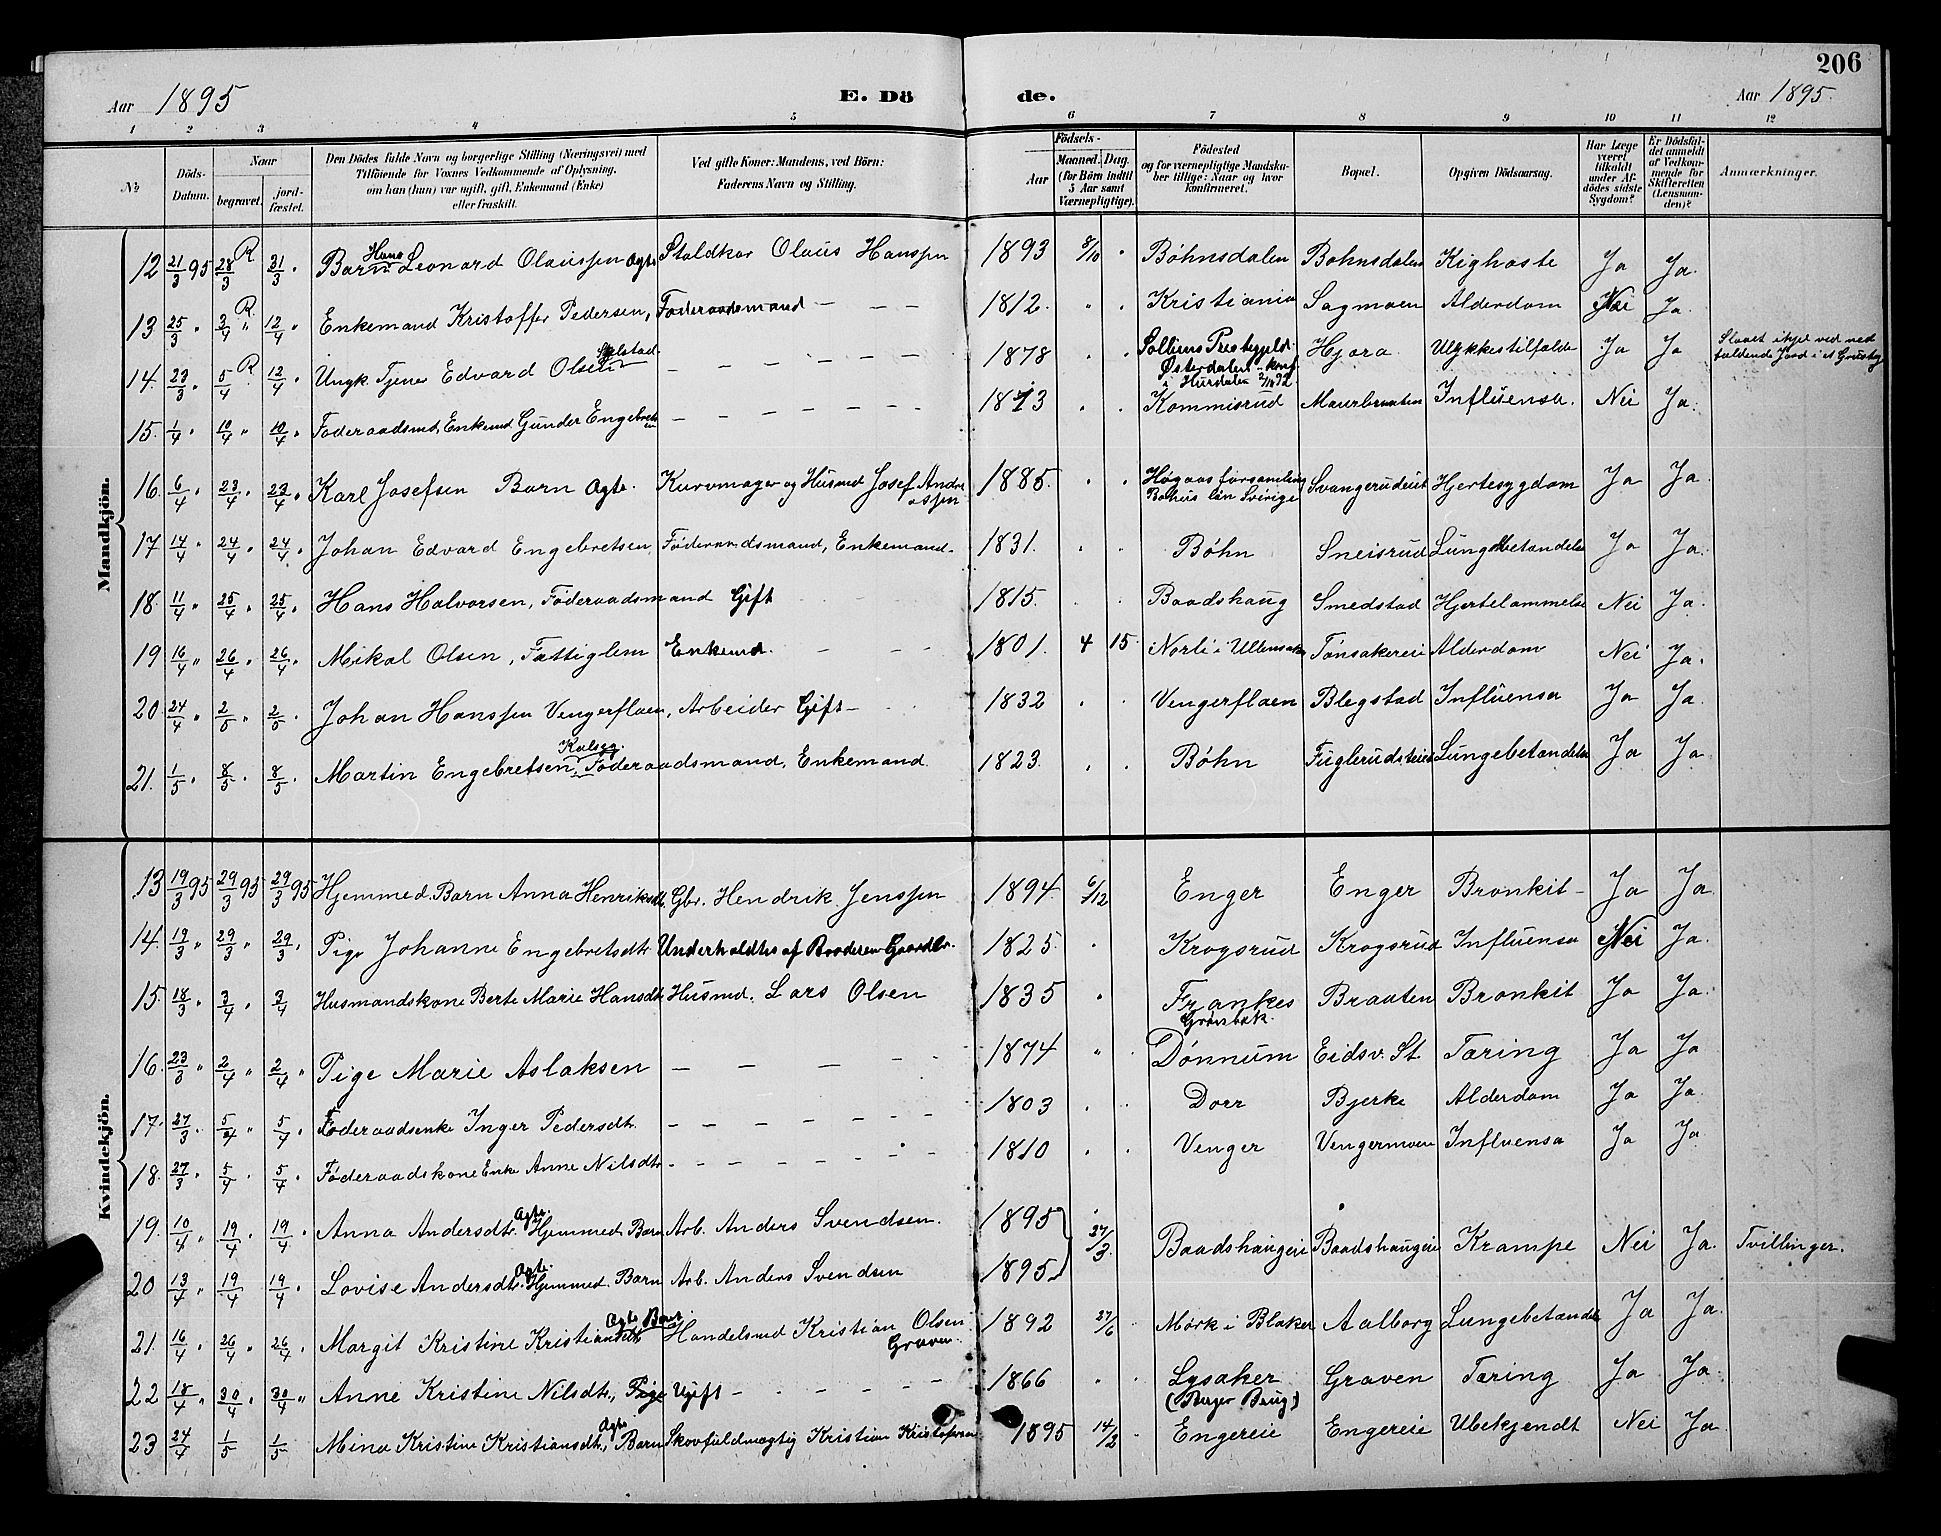 206
Aar 1895 E. Dö de. Aar 1895.
1 2 3 4 5 6 7 8 9 10 11 12
№ Döds-Datum. Naar begravet. jordfæstet. Den Dödes fulde Navn og borgerlige Stilling (Næringsvei) med Tilföiende for Voxnes Vedkommende af Oplysning, om han (hun) var ugift, gift, Enkemand (Enke) eller fraskilt. Ved gifte Koner: Mandens, ved Börn: Faderens Navn og Stilling. Födsels- Aar Maaned. Dag. (for Börn indtil 5 Aar samt Værnepligtige). Födested og for værnepligtige Mandskaber tillige: Naar og hvor konfirmeret. Bopæl. Opgiven Dödsaarsag. Har Læge været tilkaldt under Afdödes sidste Sygdom? Er Dödsfaldet anmeldt af Vedkommende for Skifteretten (Lensmanden)? Anmærkninger.
Mandkjön.
12 21/3 95 28/3 R 31/3 " Barn Hans Leonard Olaussen Ægte Staldkar Olaus Hanssen 1893 8/10 " Bøhnsdalen Bøhnsdalen Kighoste Ja Ja.
13 25/3 " 3/4 R. " 12/4 " Enkemand Kristoffer Pedersen, Føderaadsmand — — — 1812. " " Kristiania Sagmoen Alderdom Nei Ja.
14. 23/3 " 5/4 R 12/4 " Ungk. Tjener Edvard Olsen — — — — — 1878 " " Solliens Prestegjeld Østerdalen - konf. i Hurdalen 2/10 92 Hjera Ulykkestilfælde Ja Ja Slaaet ihjel ved nedfaldende Jord i et Grustag
15. 1/4 " 10/4 " 10/4 " Føderaadsmd. Enkemd Gunder Engebretsen — — — — — 1813 " " Kommisrud Maurbraaten Influensa. Nei Ja.
16. 6/4 " 23/4 " 23/4 " Karl Josefsen Barn Ægte. Kurvmager og Husmd Josef Andreassen 1885. " " Høgaas forsamling Bohus län Sverige Svangerudeiet Hjertesygdom Ja Ja.
17 14/4 " 24/4 " 24/4 " Johan Edvard Engebretsen Føderaadsmand, Enkemand. 1831. " " Bøhn Sneisrud Lungebetændelse Ja Ja.
18. 11/4 " 25/4 " 25/4 " Hans Halvorsen, Føderaadsmand Gift 1815. " " Baadshaug Smedstad Hjertelammelse Nei Ja.
19 16/4 " 26/4 " 26/4 " Mikal Olsen, Fattiglem Enkemd. — — — 1801. 4 15. Norli i Ullensaker Tønsakereie Alderdom Nei Ja.
20. 24/4 " 2/5 " 2/5 " Johan Hanssen Vengerflaen, Arbeider Gift — 1832 " " Vengerflaen Blegstad Influensa Ja Ja.
21. 1/5 " 8/5 " 8/5 " Martin Engebretsen Føderaadsmand, Enkemand. 1823. " " Bøhn Fuglerudseiet Lungebetændelse Ja Ja
Kvindekjön.
13 19/3 95 29/3 95 29/3 95 Hjemmed. Barn Anna Henriksdtr. Gbr. Hendrik Jenssen 1894. 6/12 Enger Enger Bronkit — Ja Ja.
14. 19/3 " 29/3 " 29/3 " Pige Johanne Engebretsdtr. Underholdtes af Broderen Gaardbr. 1825. " Krogsrud Krogsrud Influensa Nei Ja.
15. 18/3 " 3/4 " 3/4 " Husmandskone Berte Marie Hansdtr. Husmd. Lars Olsen 1835 " Frankes Grønbæk. Braaten Bronkit Ja Ja.
16. 23/3 " 2/4 " 2/4 " Pige Marie Aslaksen — — — — 1874 " " Dønnum Eidsv. St. Tæring Ja Ja
17. 27/3 " 5/4 " 5/4 " Føderaadsenke Inger Pedersdtr. — — — — — 1803 " " Dorr Bjerke Alderdom Ja Ja.
18. 27/3 " 5/4 " 5/4 " Føderaadskone Enke Anne Nilsdtr. — — — — — 1810 " " Venger Vengermoen Influensa Ja Ja
19. 10/4 " 19/4 " 19/4 " Anna Andersdtr. Ægte. Hjemmed. Barn Arb. Anders Svendsen. 1895 27/3. Baadshaugeie Baadshaugeie Krampe Nei Ja. Tvillinger.
20 13/4 " 19/4 " 19/4 " Lovise Andersdtr. Ægte. Hjemmed. Barn Arb. Anders Svendsen 1895
21. 16/4 " 26/4 " 26/4 " Margit Kristine Kristiansdtr. Ægte Barn Handelsmd Kristian Olsen Graven. 1892 27/6 " Mørk i Blaker Aalborg Lungebetændelse Ja Ja.
22 18/4 " 30/4 " 30/4 " Anne Kristine Nilsdtr., Pige Ugift — — — — — 1866 " " Lysaker (Berger Brug) Graven Tæring Ja Ja.
23 24/4 " 1/5 " 1/5 " Mina Kristine Kristiansdtr., Ægte Barn Skovfuldmægtig Kristian Kristofersen 1895 14/2 " Engereie Engereie Ubekjendt Nei Ja.